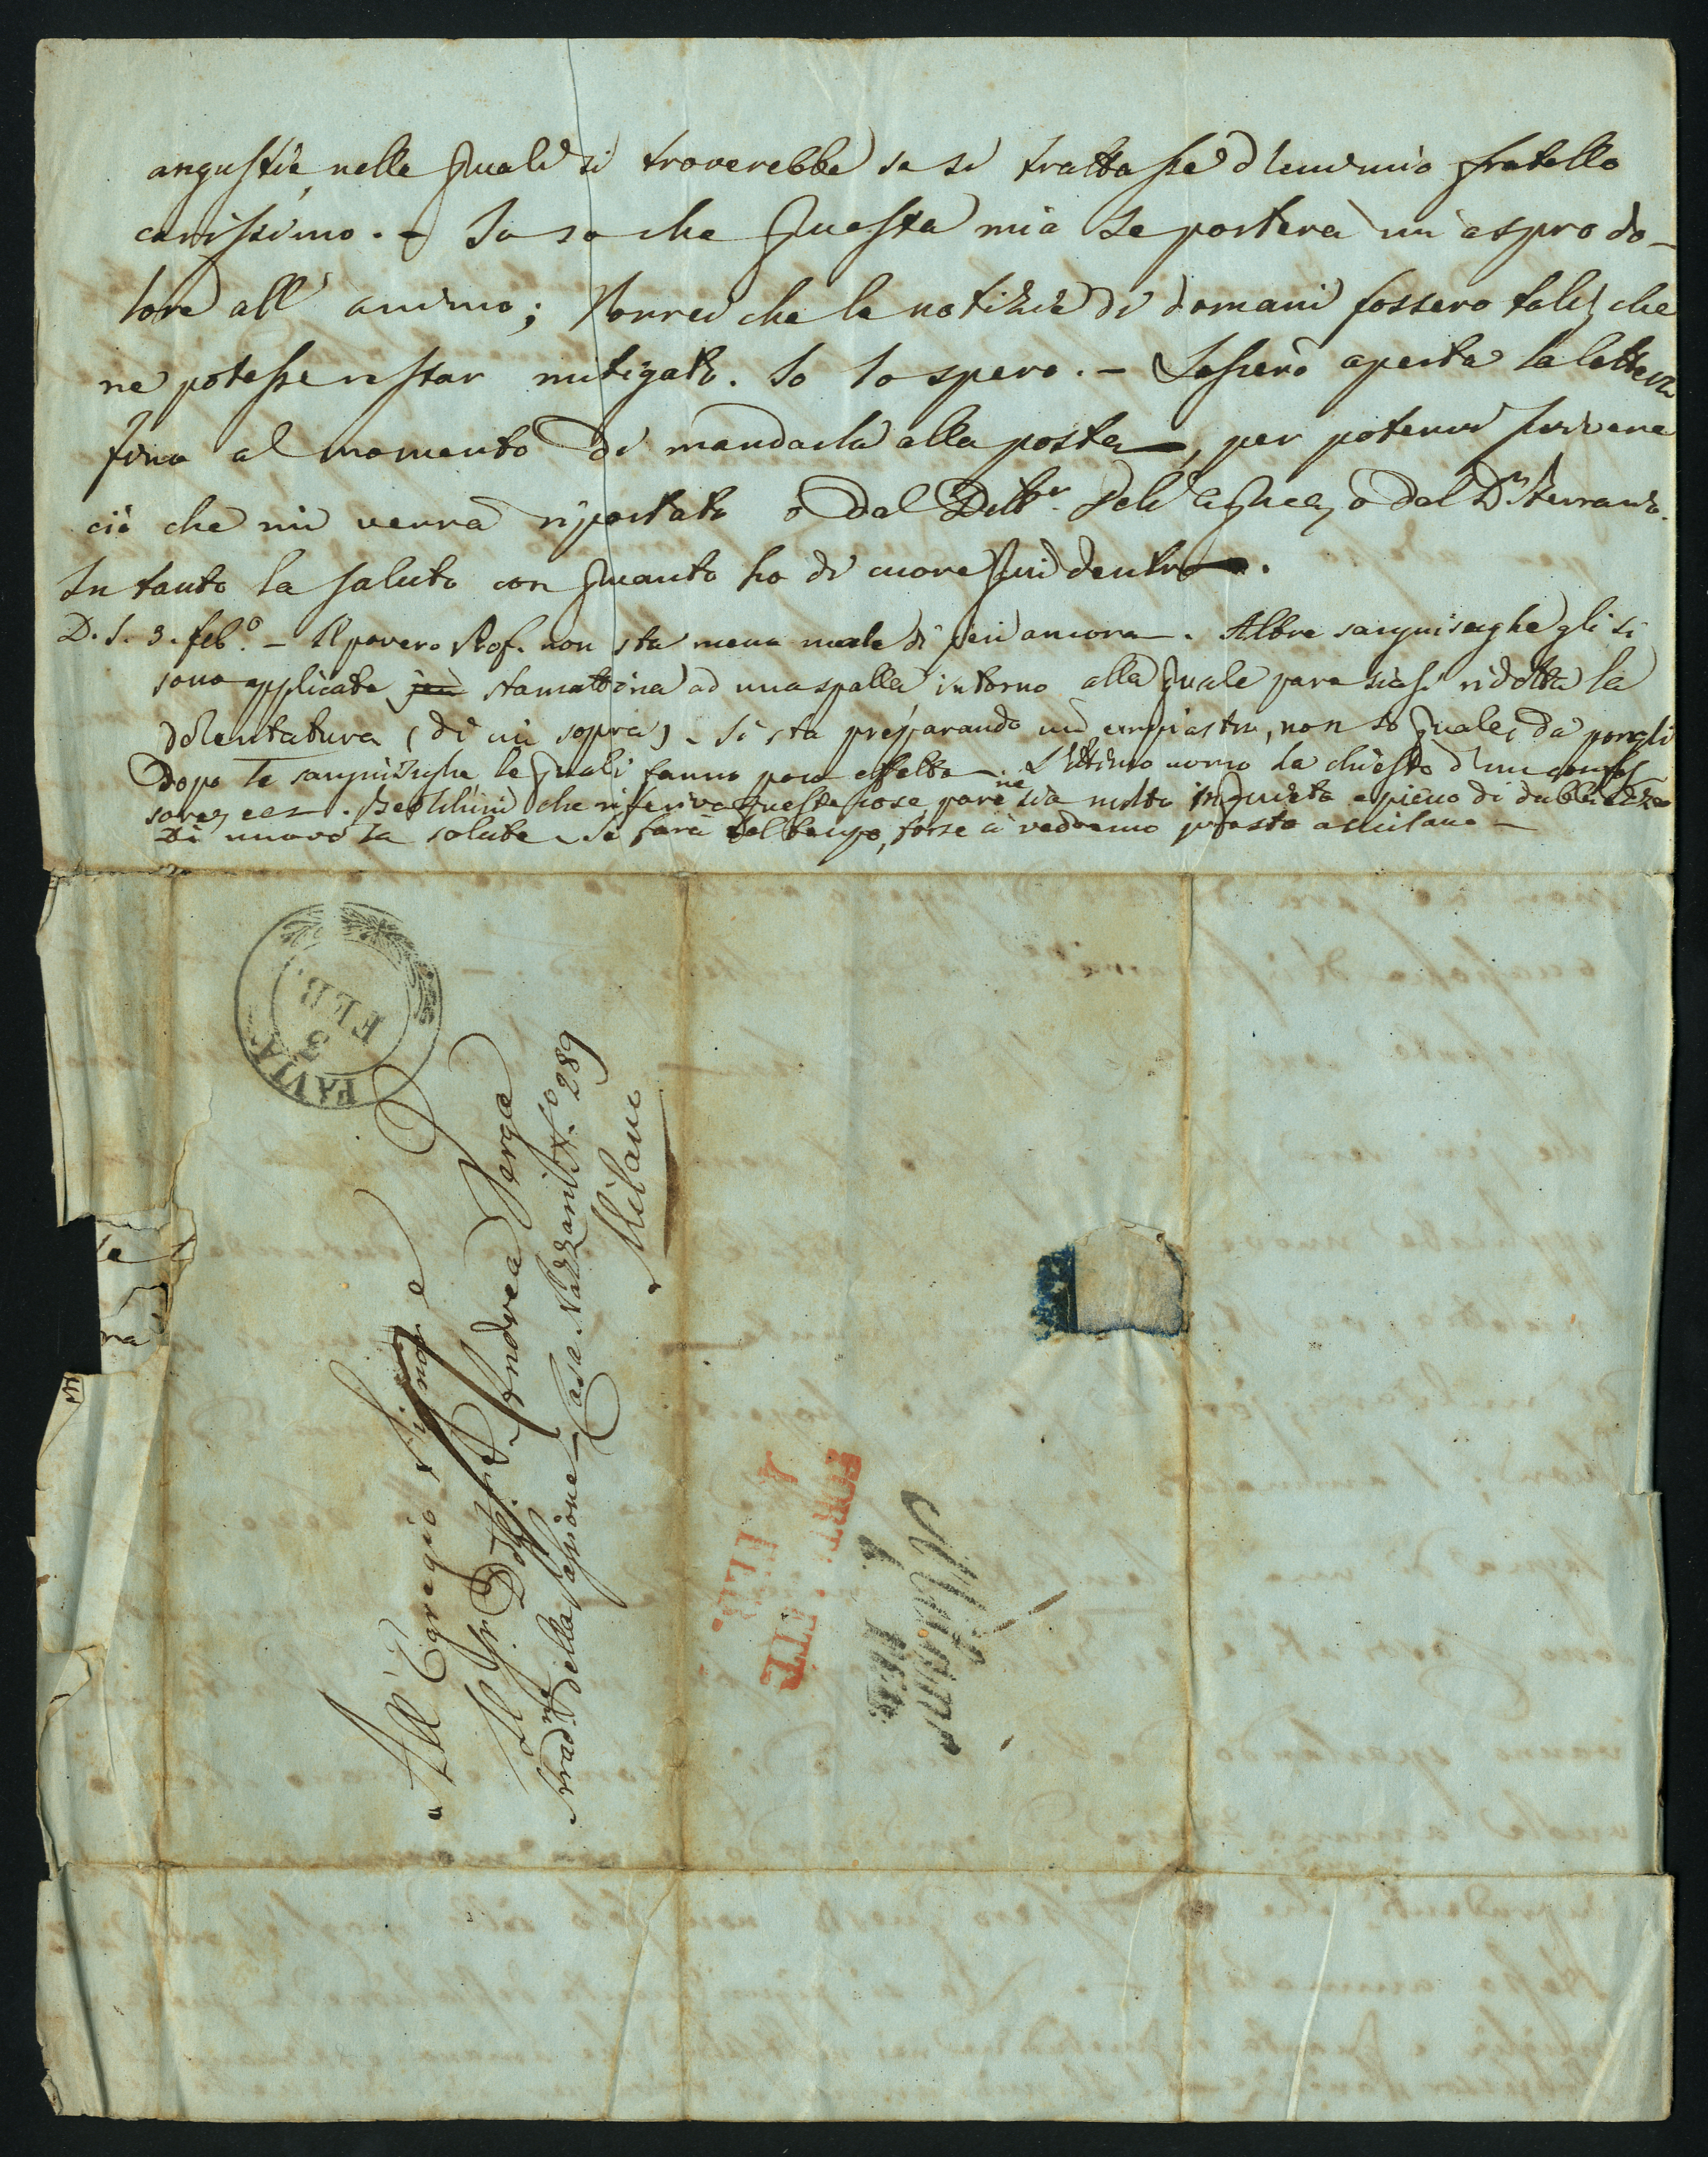 angustie, nelle quali si troverebbe se si trattasse d'un mio fratello
carissimo. - Io so che questa mia Le porterà un aspro do-
lore all' animo; vorrei che le notizie di domani fossero tali, che
ne potesse restar mitigato. Io lo spero. - Lascerò aperta la lettera
fino al momento di mandarla alla posta, per potervi scrivere
ciò che mi verrà riportato o dal Dottr. Dell' Acqua, o dal Dr.
Intanto la saluto con quanto ho di cuore qui dentro.
D. S. 3. feb.o - Il povero Prof. non sta meno male di jeri ancora. Altre sanguisughe gli si
sono applicate jeri stamattina ad una spalla intorno alla quale pare siasi ridotta la
dolentatura (di cui sopra). Si sta preparando un empiastro, non so quale, da porgli
dopo le sanguisughe le quali fanno poco effetto. L'ottimo uomo ha chiesto d'un confes
sore, ecc. che riferiva queste cose pare ne sia molto inquieto e pieno di
Di nuovo la salute. Se farà bel tempo, forse ci vedremo presto a Milano -
PAVIA
3
FEB.
All' Egregio Signore
Il Sr. Dottr. D. Andrea Verga
Strad.ne della Passione - Casa Nazzani N.o 289
Milano
4 FEB.
Milano
te
rà